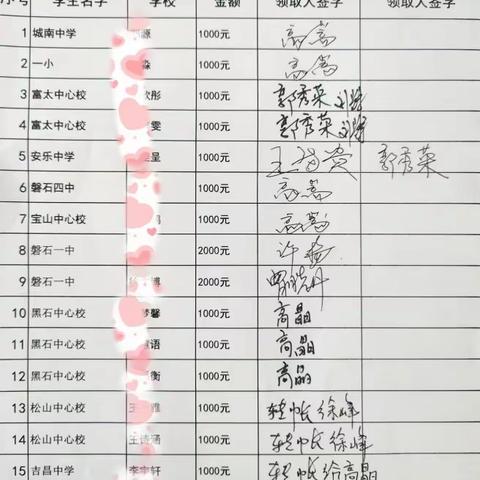 序号 学生名字 学校 金额 领取人签字 领取人签字
1 城南中学 源 1000元 高嵩
2 一小 淼 1000元 高嵩
3 富太中心校 欣彤 1000元 郭秀荣
4 富太中心校 雯 1000元 郭秀荣
5 安乐中学 呈 1000元 郭秀荣
6 磐石四中 1000元 高嵩
7 宝山中心校 1000元 高嵩
8 磐石一中 2000元 许
9 磐石一中 博 2000元
10 黑石中心校 馨 1000元 高晶
11 黑石中心校 语 1000元 高晶
12 黑石中心校 衡 1000元 高晶
13 松山中心校 王 雅 1000元 转帐徐峰
14 松山中心校 王诗涵 1000元 转帐徐峰
15 吉昌中学 李宇轩 1000元 转帐给高晶